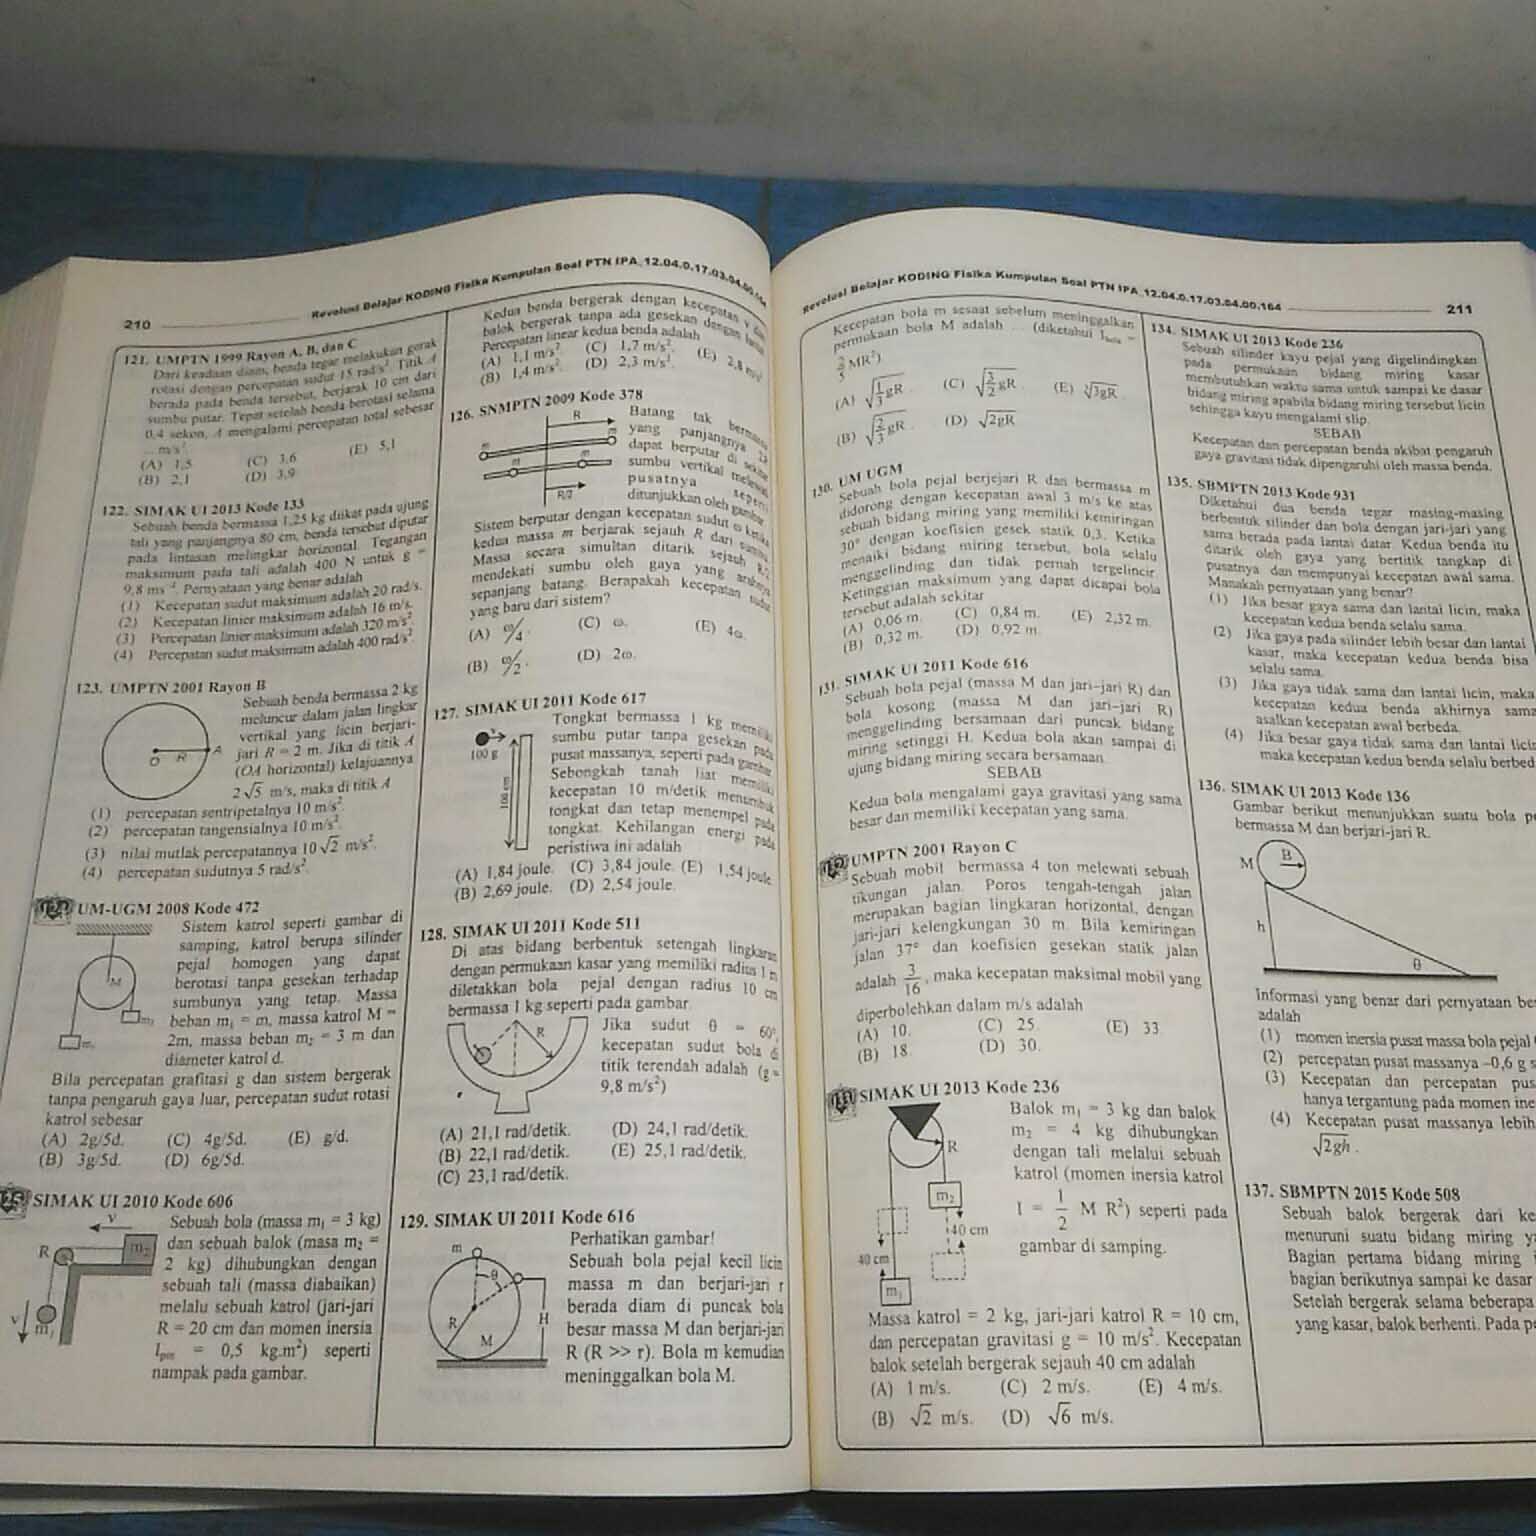 210
Revolusi Belajar KODING Fisika Kumpulan Soal PTN IPA_12.04.0.17.03.04.00.164
121. UMPTN 1999 Rayon A, B, dan C
Dari keadaan diam, benda tegar melakukan gerak
rotasi dengan percepatan sudut 15 rad/s². Titik A
berada pada benda tersebut, berjarak 10 cm dari
sumbu putar. Tepat setelah benda berotasi selama
0,4 sekon, A mengalami percepatan total sebesar
... m/s².
(A) 1,5 (C) 3,6 (E) 5,1
(B) 2,1 (D) 3,9
122. SIMAK UI 2013 Kode 133
Sebuah benda bermassa 1,25 kg diikat pada ujung
tali yang panjangnya 80 cm, benda tersebut diputar
pada lintasan melingkar horizontal. Tegangan
maksimum pada tali adalah 400 N untuk g =
9,8 ms⁻². Pernyataan yang benar adalah
(1) Kecepatan sudut maksimum adalah 20 rad/s.
(2) Kecepatan linier maksimum adalah 16 m/s.
(3) Percepatan linier maksimum adalah 320 m/s².
(4) Percepatan sudut maksimum adalah 400 rad/s².
123. UMPTN 2001 Rayon B
Sebuah benda bermassa 2 kg
meluncur dalam jalan lingkar
vertikal yang licin berjari-
jari R = 2 m. Jika di titik A
(OA horizontal) kelajuannya
2√5 m/s, maka di titik A
O R A
(1) percepatan sentripetalnya 10 m/s².
(2) percepatan tangensialnya 10 m/s².
(3) nilai mutlak percepatannya 10√2 m/s².
(4) percepatan sudutnya 5 rad/s².
UM-UGM 2008 Kode 472
Sistem katrol seperti gambar di
samping, katrol berupa silinder
pejal homogen yang dapat
berotasi tanpa gesekan terhadap
sumbunya yang tetap. Massa
beban m₁ = m, massa katrol M =
2m, massa beban m₂ = 3 m dan
diameter katrol d.
M
m₂
m₁
Bila percepatan grafitasi g dan sistem bergerak
tanpa pengaruh gaya luar, percepatan sudut rotasi
katrol sebesar
(A) 2g/5d. (C) 4g/5d. (E) g/d.
(B) 3g/5d. (D) 6g/5d.
SIMAK UI 2010 Kode 606
Sebuah bola (massa m₁ = 3 kg)
dan sebuah balok (masa m₂ =
2 kg) dihubungkan dengan
sebuah tali (massa diabaikan)
melalu sebuah katrol (jari-jari
R = 20 cm dan momen inersia
Ipm = 0,5 kg.m²) seperti
nampak pada gambar.
v
R
m₂
v
m₁
Kedua benda bergerak dengan kecepatan v dan
balok bergerak tanpa ada gesekan dengan lantai
Percepatan linear kedua benda adalah
(A) 1,1 m/s². (C) 1,7 m/s². (E) 2,8 m/s².
(B) 1,4 m/s². (D) 2,3 m/s².
126. SNMPTN 2009 Kode 378
Batang tak bermassa
yang panjangnya 2R
dapat berputar di sekitar
sumbu vertikal melewati
pusatnya seperti
ditunjukkan oleh gambar.
R
m
m
m
m
R/2
Sistem berputar dengan kecepatan sudut ω ketika
kedua massa m berjarak sejauh R dari sumbu.
Massa secara simultan ditarik sejauh R/2
mendekati sumbu oleh gaya yang arahnya
sepanjang batang. Berapakah kecepatan sudut
yang baru dari sistem?
(A) ω/4. (C) ω. (E) 4ω.
(B) ω/2. (D) 2ω.
127. SIMAK UI 2011 Kode 617
Tongkat bermassa 1 kg memiliki
sumbu putar tanpa gesekan pada
pusat massanya, seperti pada gambar.
Sebongkah tanah liat memiliki
kecepatan 10 m/detik menumbuk
tongkat dan tetap menempel pada
tongkat. Kehilangan energi pada
peristiwa ini adalah
100 g
100 cm
(A) 1,84 joule. (C) 3,84 joule. (E) 1,54 joule.
(B) 2,69 joule. (D) 2,54 joule.
128. SIMAK UI 2011 Kode 511
Di atas bidang berbentuk setengah lingkaran
dengan permukaan kasar yang memiliki radius 1 m
diletakkan bola pejal dengan radius 10 cm
bermassa 1 kg seperti pada gambar.
R
Jika sudut θ = 60°,
kecepatan sudut bola di
titik terendah adalah (g =
9,8 m/s²)
(A) 21,1 rad/detik. (D) 24,1 rad/detik.
(B) 22,1 rad/detik. (E) 25,1 rad/detik.
(C) 23,1 rad/detik.
129. SIMAK UI 2011 Kode 616
Perhatikan gambar!
Sebuah bola pejal kecil licin
massa m dan berjari-jari r
berada diam di puncak bola
besar massa M dan berjari-jari
R (R >> r). Bola m kemudian
meninggalkan bola M.
m
θ
R
H
M
Revolusi Belajar KODING Fisika Kumpulan Soal PTN IPA_12.04.0.17.03.04.00.164
211
Kecepatan bola m sesaat sebelum meninggalkan
permukaan bola M adalah ... (diketahui Ibola =
2/5 MR²)
(A) √(1/3 gR) . (C) √(3/2 gR) . (E) ∛3gR .
(B) √(2/3 gR) . (D) √2gR
130. UM UGM
Sebuah bola pejal berjejari R dan bermassa m
didorong dengan kecepatan awal 3 m/s ke atas
sebuah bidang miring yang memiliki kemiringan
30° dengan koefisien gesek statik 0,3. Ketika
menaiki bidang miring tersebut, bola selalu
menggelinding dan tidak pernah tergelincir.
Ketinggian maksimum yang dapat dicapai bola
tersebut adalah sekitar
(A) 0,06 m. (C) 0,84 m. (E) 2,32 m.
(B) 0,32 m. (D) 0,92 m.
131. SIMAK UI 2011 Kode 616
Sebuah bola pejal (massa M dan jari-jari R) dan
bola kosong (massa M dan jari-jari R)
menggelinding bersamaan dari puncak bidang
miring setinggi H. Kedua bola akan sampai di
ujung bidang miring secara bersamaan.
SEBAB
Kedua bola mengalami gaya gravitasi yang sama
besar dan memiliki kecepatan yang sama.
UMPTN 2001 Rayon C
Sebuah mobil bermassa 4 ton melewati sebuah
tikungan jalan. Poros tengah-tengah jalan
merupakan bagian lingkaran horizontal, dengan
jari-jari kelengkungan 30 m. Bila kemiringan
jalan 37° dan koefisien gesekan statik jalan
adalah 3/16, maka kecepatan maksimal mobil yang
diperbolehkan dalam m/s adalah
(A) 10. (C) 25. (E) 33
(B) 18. (D) 30.
SIMAK UI 2013 Kode 236
Balok m₁ = 3 kg dan balok
m₂ = 4 kg dihubungkan
dengan tali melalui sebuah
katrol (momen inersia katrol
I = 1/2 M R²) seperti pada
gambar di samping.
R
m₂
40 cm
40 cm
m₁
Massa katrol = 2 kg, jari-jari katrol R = 10 cm,
dan percepatan gravitasi g = 10 m/s². Kecepatan
balok setelah bergerak sejauh 40 cm adalah
(A) 1 m/s. (C) 2 m/s. (E) 4 m/s.
(B) √2 m/s. (D) √6 m/s.
134. SIMAK UI 2013 Kode 236
Sebuah silinder kayu pejal yang digelindingkan
pada permukaan bidang miring kasar
membutuhkan waktu sama untuk sampai ke dasar
bidang miring apabila bidang miring tersebut licin
sehingga kayu mengalami slip.
SEBAB
Kecepatan dan percepatan benda akibat pengaruh
gaya gravitasi tidak dipengaruhi oleh massa benda.
135. SBMPTN 2013 Kode 931
Diketahui dua benda tegar masing-masing
berbentuk silinder dan bola dengan jari-jari yang
sama berada pada lantai datar. Kedua benda itu
ditarik oleh gaya yang bertitik tangkap di
pusatnya dan mempunyai kecepatan awal sama.
Manakah pernyataan yang benar?
(1) Jika besar gaya sama dan lantai licin, maka
kecepatan kedua benda selalu sama.
(2) Jika gaya pada silinder lebih besar dan lantai
kasar, maka kecepatan kedua benda bisa
selalu sama.
(3) Jika gaya tidak sama dan lantai licin, maka
kecepatan kedua benda akhirnya sama
asalkan kecepatan awal berbeda.
(4) Jika besar gaya tidak sama dan lantai licin
maka kecepatan kedua benda selalu berbed
136. SIMAK UI 2013 Kode 136
Gambar berikut menunjukkan suatu bola pe
bermassa M dan berjari-jari R.
M
B
h
θ
Informasi yang benar dari pernyataan be
adalah
(1) momen inersia pusat massa bola pejal
(2) percepatan pusat massanya –0,6 g s
(3) Kecepatan dan percepatan pus
hanya tergantung pada momen ine
(4) Kecepatan pusat massanya lebih
√2gh .
137. SBMPTN 2015 Kode 508
Sebuah balok bergerak dari ke
menuruni suatu bidang miring y
Bagian pertama bidang miring
bagian berikutnya sampai ke dasar
Setelah bergerak selama beberapa
yang kasar, balok berhenti. Pada p